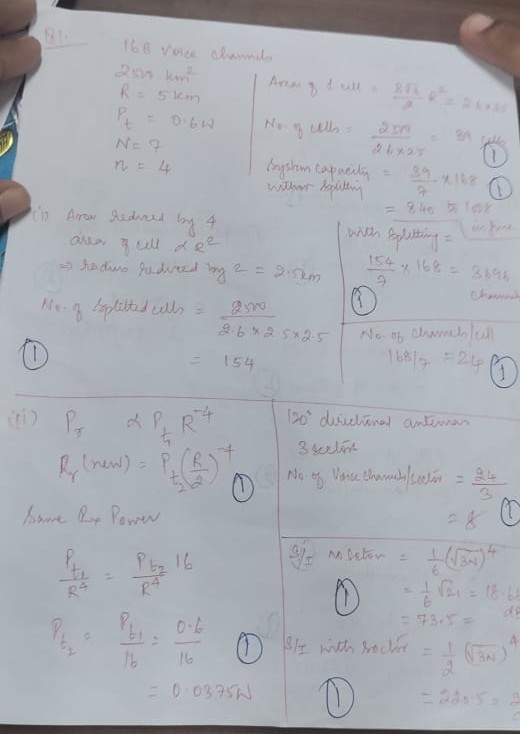 Q1.
168 Voice Channels
2500 km²
R = 5 km
Pt = 0.6W
N = 7
n = 4
Area of 1 cell = R² = 26×25
No. of cells = 2500 / 26×25 = 39 cells
①
System capacity without splitting = 39/7 × 168
①
= 840 to 1008
(i) Area reduced by 4
area of cell ∝ R²
⇒ radius reduced by 2 = 2.5km
No. of splitted cells = 2500 / 2.6×2.5×2.5
① = 154
with splitting =
154/7 × 168 = 3696
channels
①
No. of channels/cell
168/7 = 24 ①
(ii) Pr ∝ Pt1 R⁻⁴
Pr(new) = Pt2 (R/2)⁻⁴ ①
Same Rx Power
Pt1/R⁴ = Pt2/R⁴ 16
Pt2 = Pt1/16 = 0.6/16 ①
= 0.0375W
120° directional antennas
3 sectors
No. of Voice channels/sector = 24/3
= 8 ①
S/I no sector = 1/6 (√3N)⁴
① = 1/6 √21
= 73.5 =
S/I with sector = 1/2 (√3N)⁴
① = 220.5 =